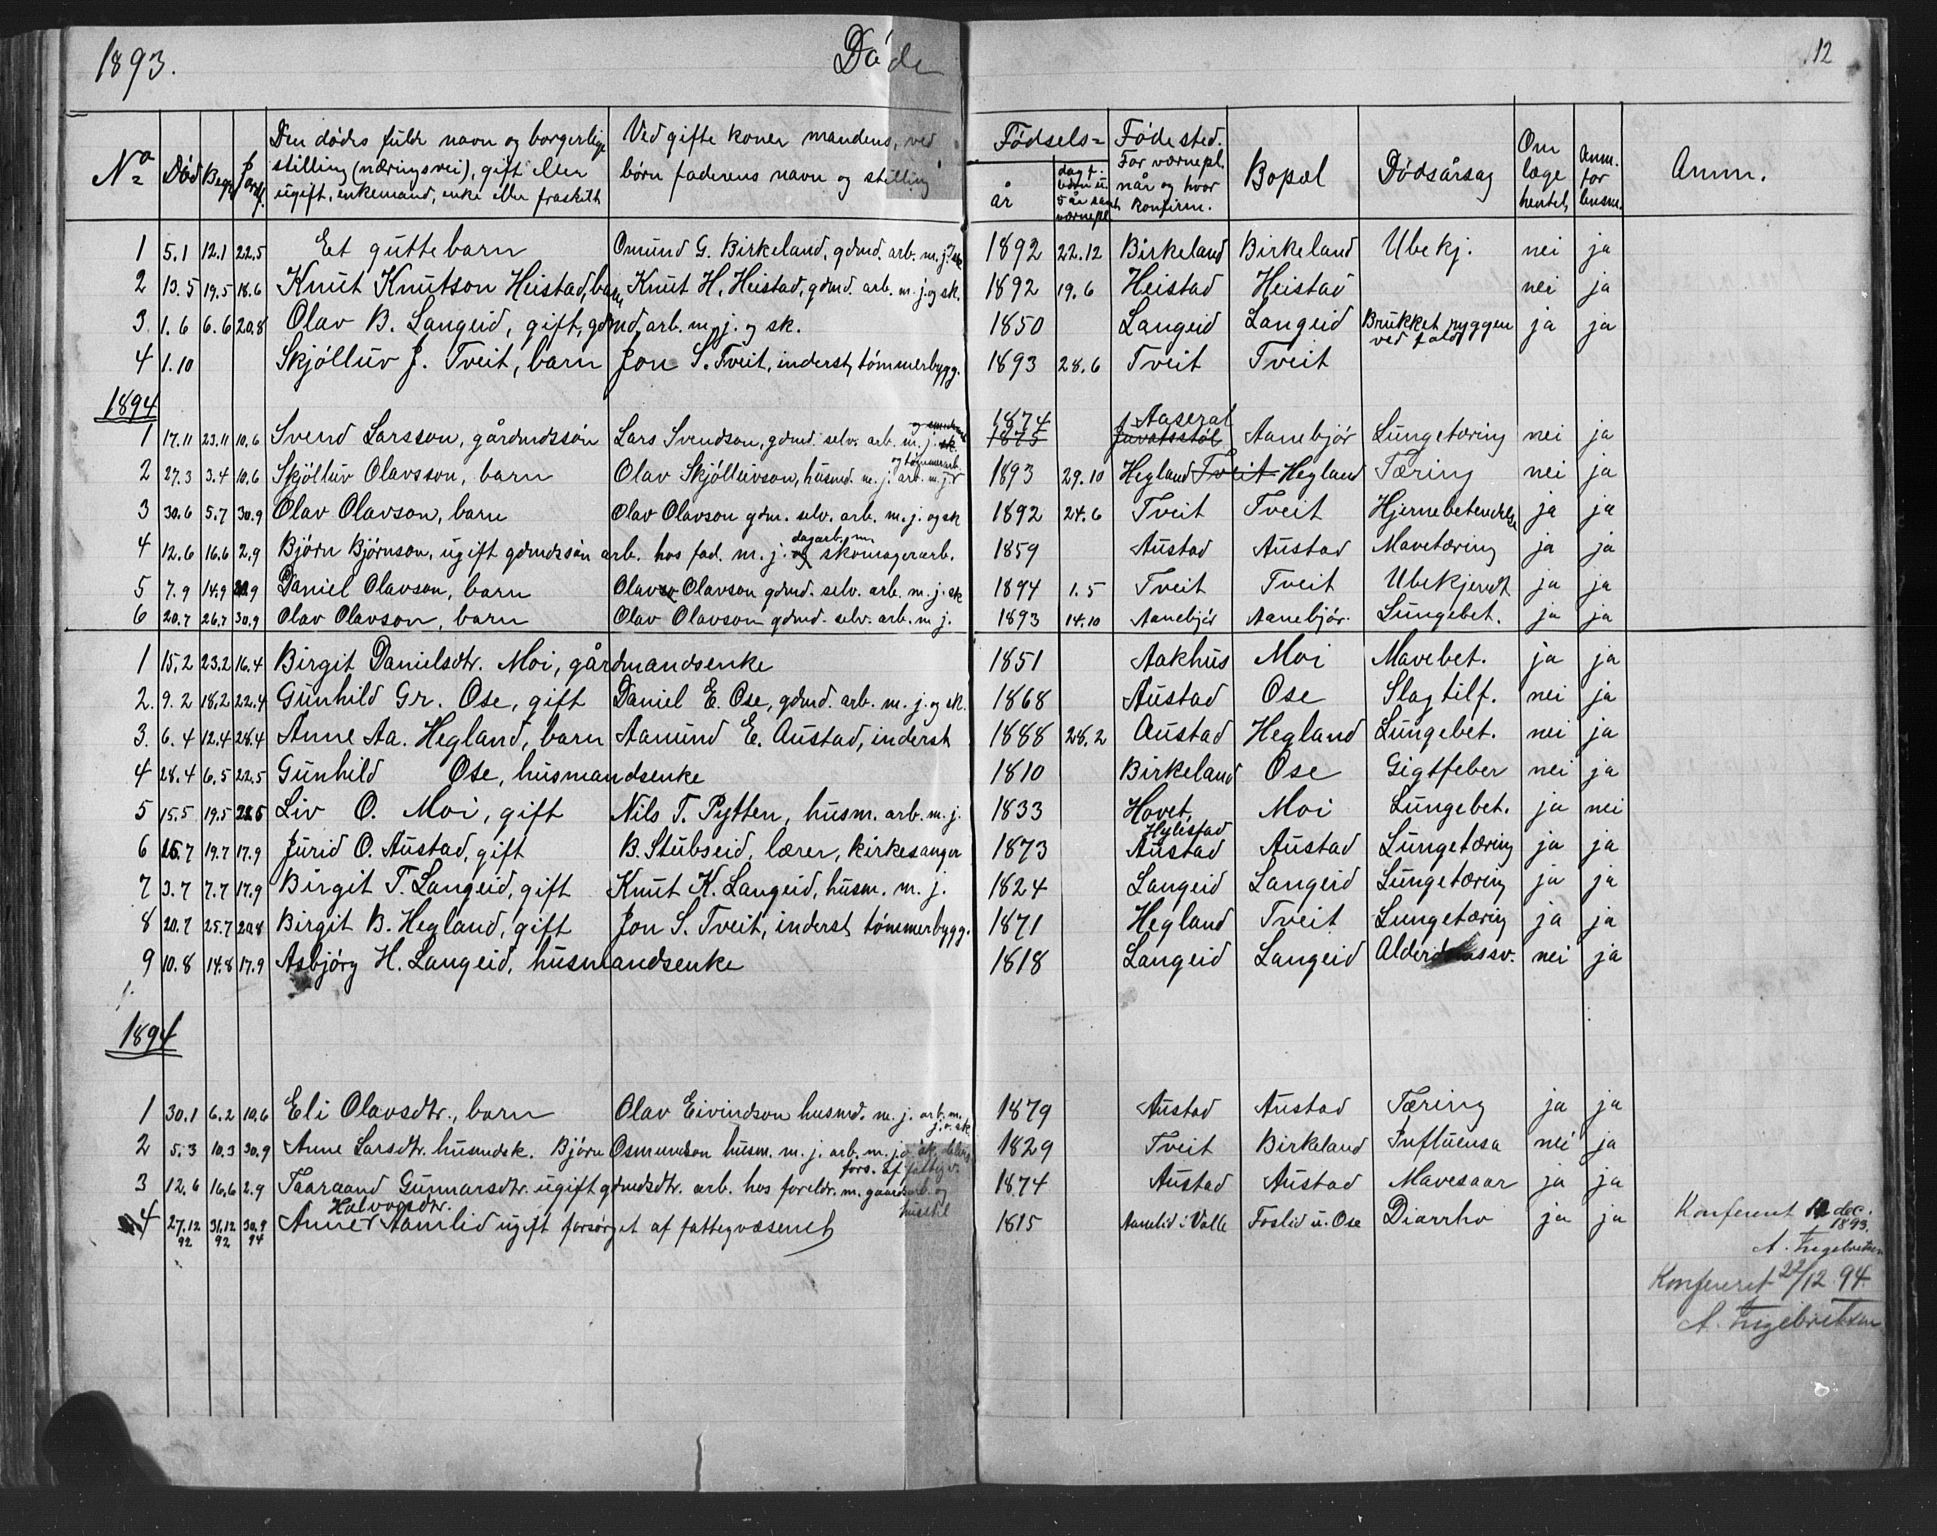 1893. Døde 12
No Død Begr. Jordf. Den dødes fulde navn og borgerlige stilling (næringsvei), gift eller ugift, enkemand, enke eller fraskilt Ved gifte koner mandens, ved børn faderens navn og stilling Fødsels= år dag f. børn u. 5 år samt værnepl. Fødested. For værnepl. når og hvor konfirm. Bopæl Dødsårsag Om læge hentet Anm. for lensm. Anm.
1 5.1 12.1 22.5 Et guttebarn Omund G. Birkeland, gdmd. arb. m. j. sk 1892 22.12 Birkeland Birkeland Ubekj. nei ja
2 13.5 19.5 18.6 Knut Knutson Heistad, barn Knut H. Heistad, gdmd. arb. m. j. og sk. 1892 19.6 Heistad Heistad nei ja
3. 1.6 6.6 20.8 Olav B. Langeid, gift, gdmd. arb. m. j. og sk. 1850 Langeid Langeid Brukket ryggen ved fald ja ja
4 1.10 Skjølluv J. Tveit, barn Jon S. Tveit, inderst, tømmerbygg. 1893 28.6 Tveit Tveit
1894
1 17.11 23.11 10.6 Svend Larsson, gårdmdssøn Lars Svendson, gdmd. selv. arb. m. j. sk. 1874 1875 Aaseral Aanebjør Lungetæring nei ja
2 27.3 3.4 10.6 Skjølluv Olavsson, barn Olav Skjølluvson, husmd. m. j. arb. m. j. og tømmerarb. 1893 29.10 Hegland Tveit Hegland Tæring nei ja
3 30.6 5.7 30.9 Olav Olavson, barn Olav Olavson gdm. selv. arb. m. j. og sk 1892 24.6 Tveit Tveit Hjernebetendelse ja ja
4 12.6 16.6 2.9 Bjørn Bjørnson, ugift gdmdssøn arb. hos fad. m. j. og dagarb. m. skomagerarb. 1859 Austad Austad Mavetæring ja ja
5 7.9 14.9 9 Daniel Olavson, barn Olav Olavson gdmd. selv. arb. m. j. sk 1894 1.5 Tveit Tveit Ubekjendt ja ja
6 20.7 26.7 30.9 Olav Olavson, barn Olav Olavson gdmd. selv. arb. m j. 1893 14.10 Aanebjør Aanebjør. Lungebet. ja ja
1 15.2 23.2 16.4 Birgit Danielsdtr. Moi, gårdmandsenke 1851 Aakhus Moi Mavebet. ja ja
2. 9.2 18.2 22.4 Gunhild Gr. Ose, gift Daniel E. Ose, gdmd. arb. m. j. og sk. 1868 Austad Ose Slagtilf. nei ja
3. 6.4 12.4 28.4 Anne Aa. Hegland, barn Aamund E. Austad, inderst 1888 28.2 Austad Hegland Lungebet. nei ja
4 28.4 6.5 22.5 Gunhild Ose, husmandsenke 1810 Birkeland Ose Gigtfeber nei ja
5 15.5 19.5 22.5 Liv O. Moi, gift Nils T. Pytten, husm. arb. m. j. 1833 Hovet, Hylestad Moi Lungebet. ja nei
6 15.7 19.7 17.9 Jurid O. Austad, gift B. Stubseid, lærer, kirkesanger 1873 Austad Austad Lungetæring ja ja
7 3.7 7.7 17.9 Birgit T. Langeid, gift Knut K. Langeid, husm. m. j. 1824 Langeid Langeid Lungetæring ja ja
8 20.7 25.7 20.8 Birgit B. Hegland, gift Jon S. Tveit, inderst, tømmerbygg. 1871 Hegland Tveit Lungetæring ja ja
9 10.8 14.8 17.9 Asbjørg H. Langeid, husmandsenke 1818 Langeid Langeid Alderdomssv. nei ja
1894
1 30.1 6.2 10.6 Eli Olavsdtr., barn Olav Eivindson husmd. m. j. arb. m. j. o. sk. 1879 Austad Austad Tæring ja ja
2 5.3 10.3 30.9 Anne Larsdtr. husmdsk. Bjørn Osmundson husm. m. j. arb. m. j. o. sk. delvis fors. af fattigv. 1829 Tveit Birkeland Influensa nei ja
3 12.6 16.6 2.9 Taaraand Gunnarsdtr. ugift gdmdsdtr. arb. hos foreldr. m. gaardsarb. og husstel 1874 Austad Austad Mavesaar ja ja
4 27.12 92 31.12 92 30.9 94 Anne Halvorsdtr. Aamlid ugift forsørget af fattegvæsenet 1815 Aamlid i Valle Foslid u. Ose Diarrho ja ja
Konferert 12 dec. 1893.
A. Engebretsen
Konfereret 22/12 94.
A. Engebretsen